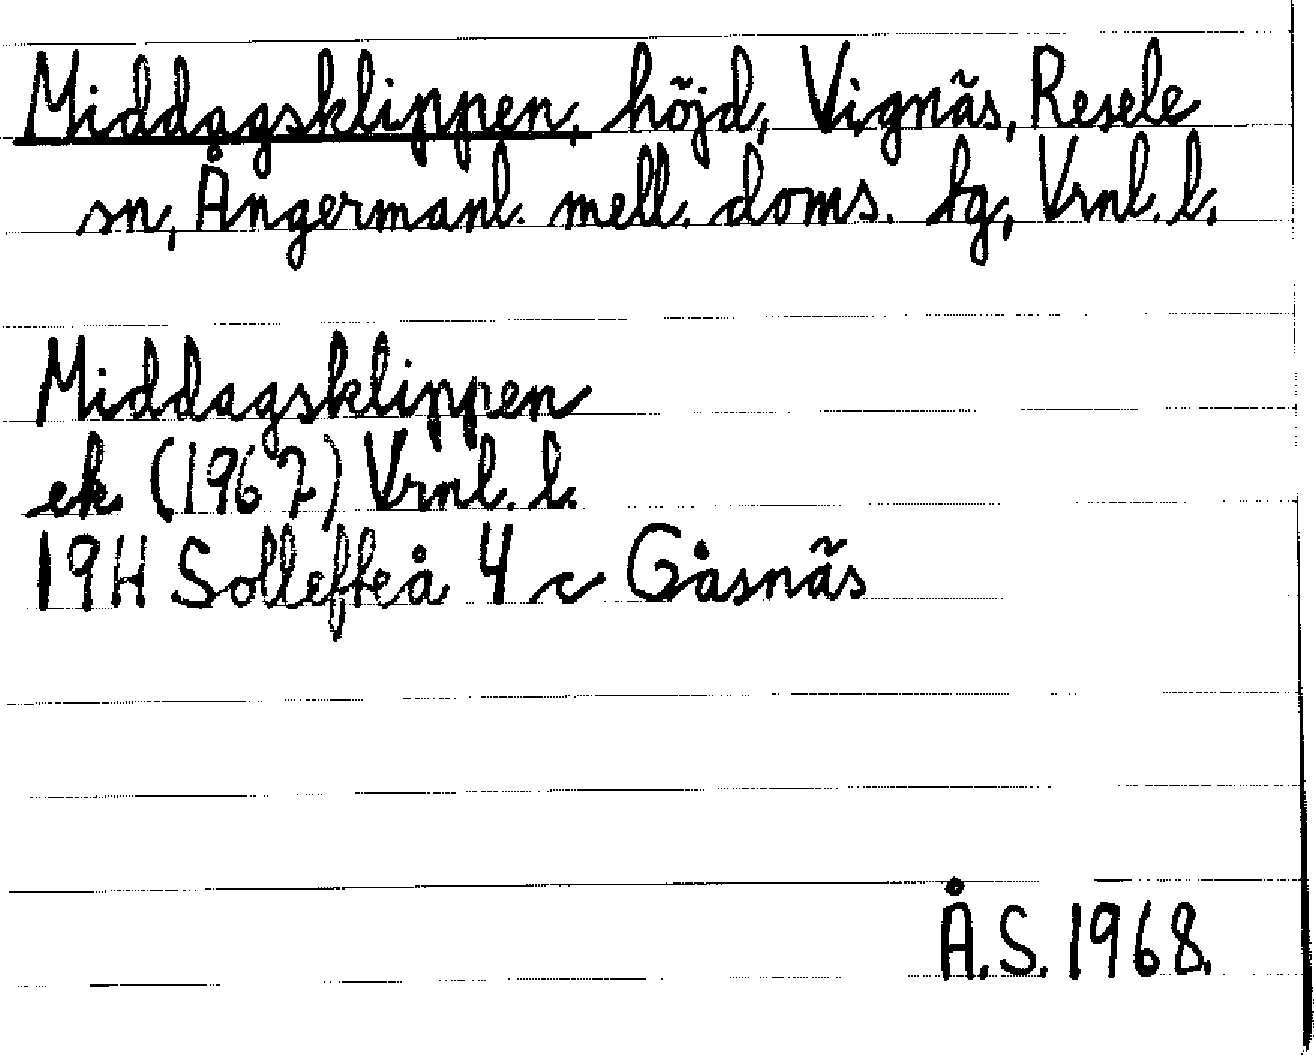 Middagsklippen, höjd, Vignäs, Resele
sn, Ångermanl. mell. doms. sg, Vrnl. l.
Middagsklippen
ek. (1967) Vrnl. l.
19H Sollefteå 4 c Gåsnäs
Å.S. 1968.